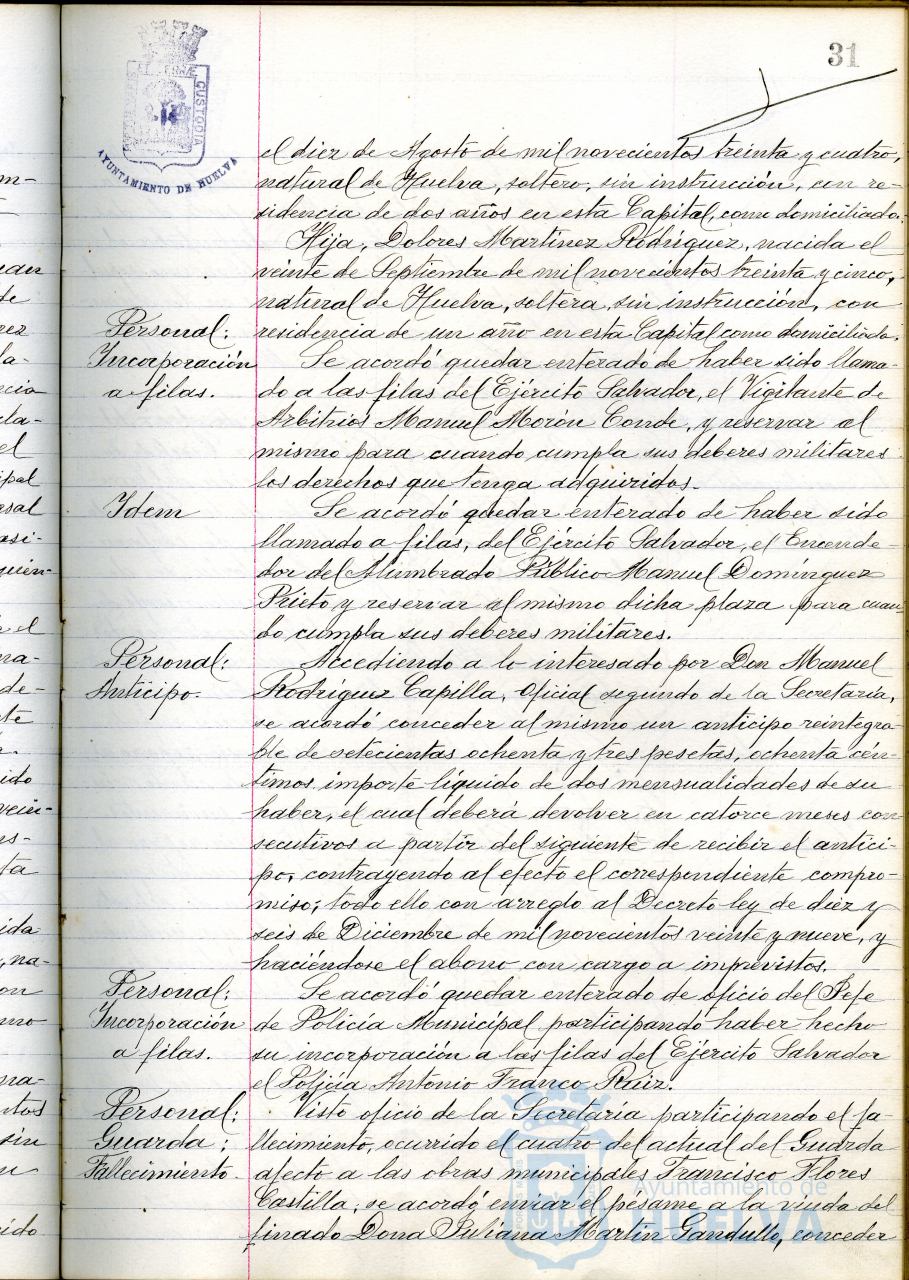 31
AYUNTAMIENTO DE HUELVA
CUSTODIA
el diez de Agosto de mil novecientos treinta y cuatro,
natural de Huelva, soltero, sin instrucción, con re-
sidencia de dos años en esta Capital, como domiciliado.
Hija, Dolores Martínez Rodríguez, nacida el
veinte de Septiembre de mil novecientos treinta y cinco,
natural de Huelva, soltera, sin instrucción, con
residencia de un año en esta Capital como domiciliada.
Personal:
Incorporación
a filas.
Se acordó quedar enterado de haber sido llama-
do a las filas del Ejército Salvador, el Vigilante de
Arbitrios Manuel Morón Conde, y reservar al
mismo para cuando cumpla sus deberes militares
los derechos que tenga adquiridos.
Idem
Se acordó quedar enterado de haber sido
llamado a filas, del Ejército Salvador, el Encende-
dor del Alumbrado Público Manuel Domínguez
Prieto y reservar al mismo dicha plaza para cuan-
do cumpla sus deberes militares.
Personal:
Anticipo.
Accediendo a lo interesado por Don Manuel
Rodríguez Capilla, Oficial segundo de la Secretaría,
se acordó conceder al mismo un anticipo reintegra-
ble de setecientas ochenta y tres pesetas, ochenta cén-
timos, importe líquido de dos mensualidades de su
haber, el cual deberá devolver en catorce meses con-
secutivos a partir del siguiente de recibir el antici-
po, contrayendo al efecto el correspondiente compro-
miso; todo ello con arreglo al Decreto-ley de diez y
seis de Diciembre de mil novecientos veinte y nueve, y
haciéndose el abono con cargo a imprevistos.
Personal:
Incorporación
a filas.
Se acordó quedar enterado de oficio del Jefe
de Policía Municipal participando haber hecho
su incorporación a las filas del Ejército Salvador
el Policía Antonio Franco Ruiz.
Personal:
Guarda:
Fallecimiento.
Visto oficio de la Secretaría participando el fa-
llecimiento, ocurrido el cuatro del actual del Guarda
afecto a las obras municipales Francisco Flores
Castilla; se acordó enviar el pésame a la viuda del
finado Dona Juliana Martín Gandullo, conceder
Ayuntamiento de
HUELVA